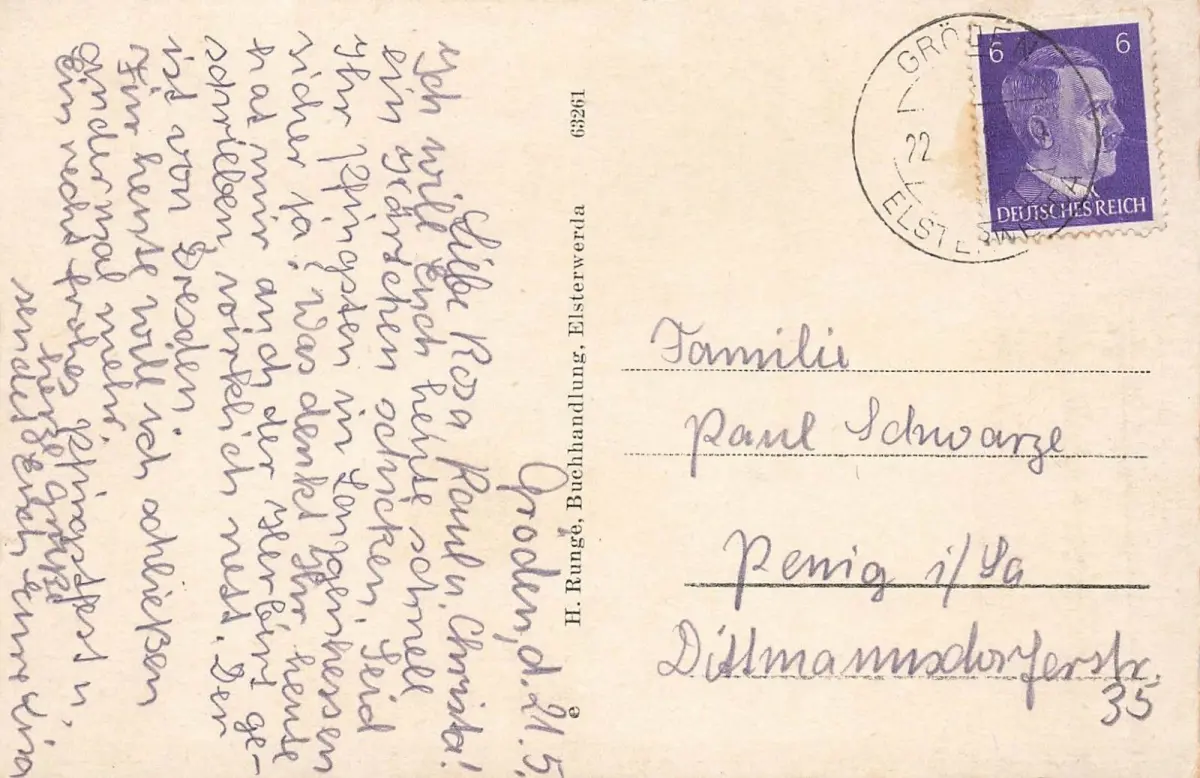 Gröden, d. 21.5.
Liebe Rosa Paul u. Christa!
Ich will Euch heute schnell
ein Kärtchen schicken. Seid
Ihr Pfingsten in Langenhessen
sicher ja. Was denkt Ihr heute
hat mir auch der Herbert ge-
schrieben, wirklich nett. Der
ist von Dresden.
Für heute will ich schließen
ander mal mehr.
Ein recht frohes Pfingstfest u.
herzl. Grüße
sendet Euch Eure
H. Runge, Buchhandlung, Elsterwerda 63261
e
GRÖDEN
22
ELSTERWERDA
6 6
DEUTSCHES REICH
Familie
Paul Schwarze
Penig i/Sa
Dittmannsdorferstr.
35